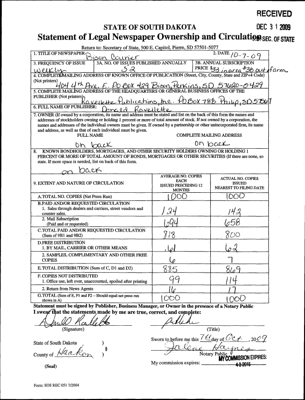 RECEIVED
DEC 31 2009
SEC. OF STATE
STATE OF SOUTH DAKOTA
Statement of Legal Newspaper Ownership and Circulation
Return to: Secretary of State, 500 E. Capitol, Pierre, SD 57501-5077
1. TITLE OF NEWSPAPER Bison Courier
2. DATE 10-7-09
3. FREQUENCY OF ISSUES weekly
3A. NO. OF ISSUES PUBLISHED ANNUALLY 52
3B. ANNUAL SUBSCRIPTION PRICE
4. COMPLETE MAILING ADDRESS OF KNOWN OFFICE OF PUBLICATION (Street, City, County, State and ZIP+4 Code) (Not printers)
PO Box 429 Bison Perkins, SD 57620-0429
5. COMPLETE MAILING ADDRESS OF THE HEADQUARTERS OR GENERAL BUSINESS OFFICES OF THE PUBLISHER (Not printers)
Ravellette Publications, Inc. PO Box 788 Philip, SD 57567
6. FULL NAME OF PUBLISHER:
Ravellette
7. OWNER (If owned by a corporation, its name and address must be stated and list on the back of this form the names and
addresses of stockholders owning or holding 1 percent or more of total amount of stock. If not owned by a corporation, the
names and addresses of the individual owners must be given. If owned by a partnership or other unincorporated firm, its name
and address, as well as that of each individual must be given.
FULL NAME
COMPLETE MAILING ADDRESS
on back
on back
8. KNOWN BONDHOLDERS, MORTGAGEES, AND OTHER SECURITY HOLDERS OWNING OR HOLDING 1
PERCENT OR MORE OF TOTAL AMOUNT OF BONDS, MORTGAGES OR OTHER SECURITIES (If there are none, so
state. If more space is needed, list on back of this form.
on back
9. EXTENT AND NATURE OF CIRCULATION
AVERAGE NO. COPIES EACH ISSUED PRECEDING 12 MONTHS
ACTUAL NO. COPIES ISSUED NEAREST TO FILING DATE
A. TOTAL NO. COPIES (Net Press Run) 1000 1000
B. PAID AND/OR REQUESTED CIRCULATION
1. Sales through dealers and carriers, street vendors and counter sales. 124 142
2. Mail Subscription (Paid and or requested) 694 658
C. TOTAL PAID AND/OR REQUESTED CIRCULATION (Sum of 9B1 and 9B2) 818 800
D. FREE DISTRIBUTION
1. BY MAIL, CARRIER OR OTHER MEANS 62
2. SAMPLES, COMPLIMENTARY AND OTHER FREE COPIES 6 7
E. TOTAL DISTRIBUTION (Sum of C, D1 and D2) 885 869
F. COPIES NOT DISTRIBUTED
1. Office use, left over, unaccounted, spoiled after printing 99 114
2. Return from News Agents 16 17
G. TOTAL (Sum of E, F1 and F2 - Should equal net press run shown in A) 1000 1000
Statement must be signed by Publisher, Business Manager, or Owner in the presence of a Notary Public
I swear that the statements made by me are true, correct, and complete:
(Signature)
(Title)
State of South Dakota )
County of Haakon )
(Seal)
Sworn to before me this 7 day of Oct 2009
Notary Public
My commission expires:
MY COMMISSION EXPIRES: